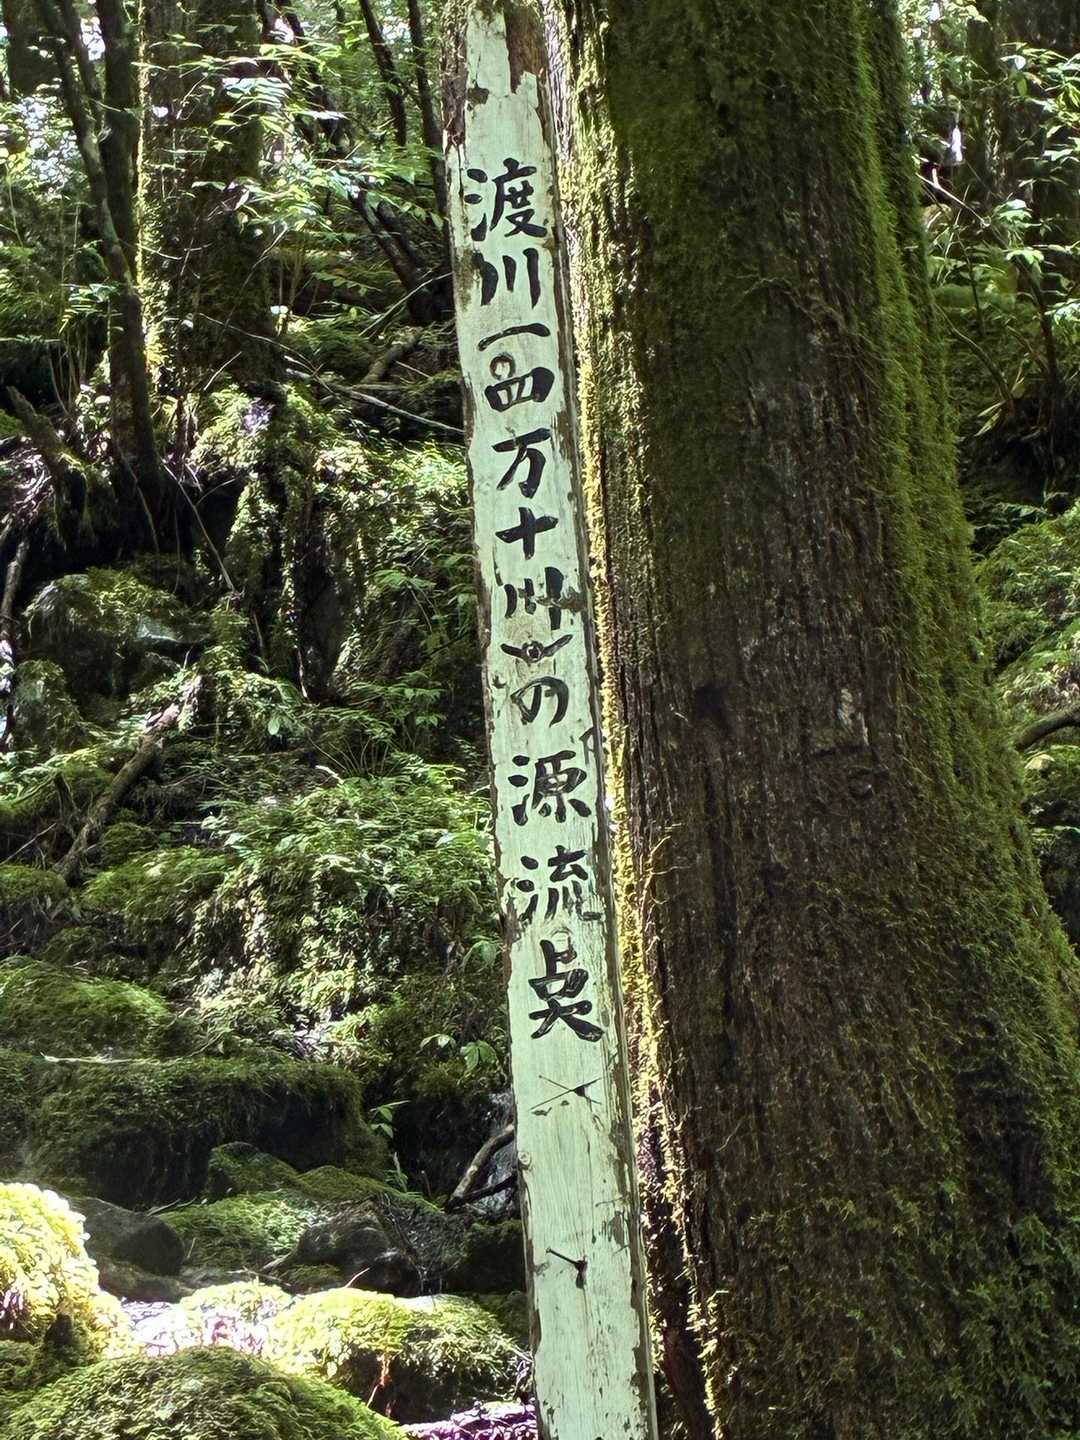 渡川(四万十川)の源流点